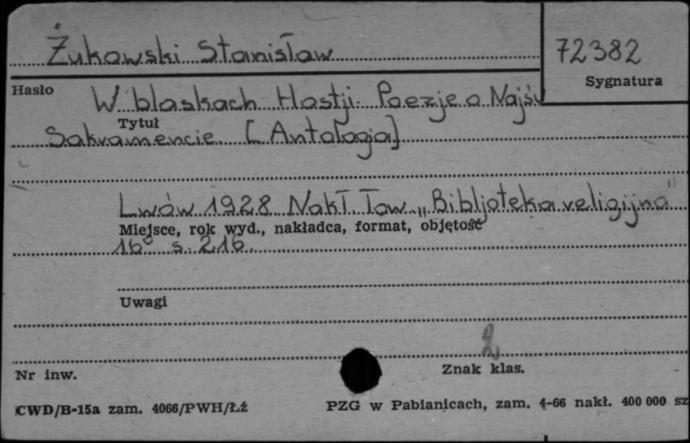 Żukowski Stanisław
72382
Hasło
Sygnatura
W blaskach Hostji. Poezje o Najśw
Tytuł
Sakramencie [Antologja]
Lwów 1928 Nakł Tow „Bibljoteka religijna"
Miejsce, rok wyd., nakładca, format, objętość
16° s. 216.
Uwagi
2
Nr inw.
Znak klas.
CWD/B-15a zam. 4066/PWH/Łź
PZG w Pabianicach, zam. 4-66 nakł. 400 000 sz